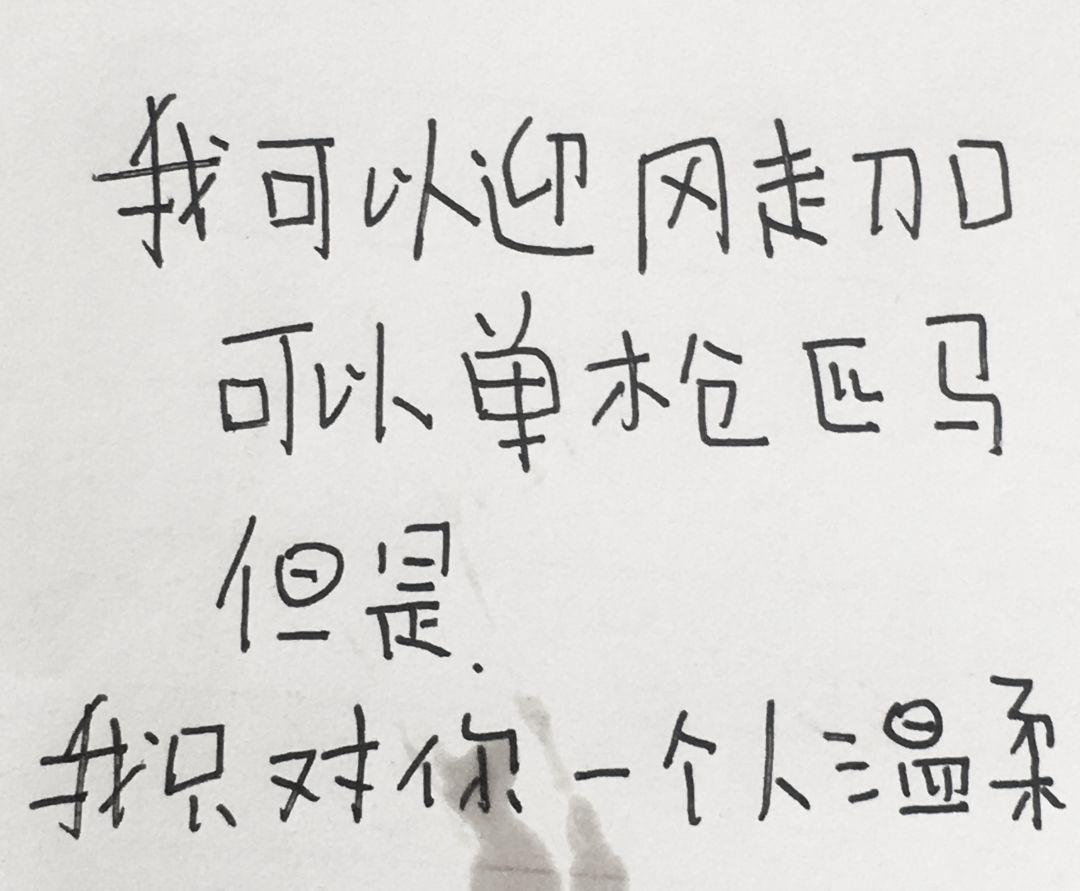 我可以迎风走刀口
可以单枪匹马
但是.
我只对你一个人温柔